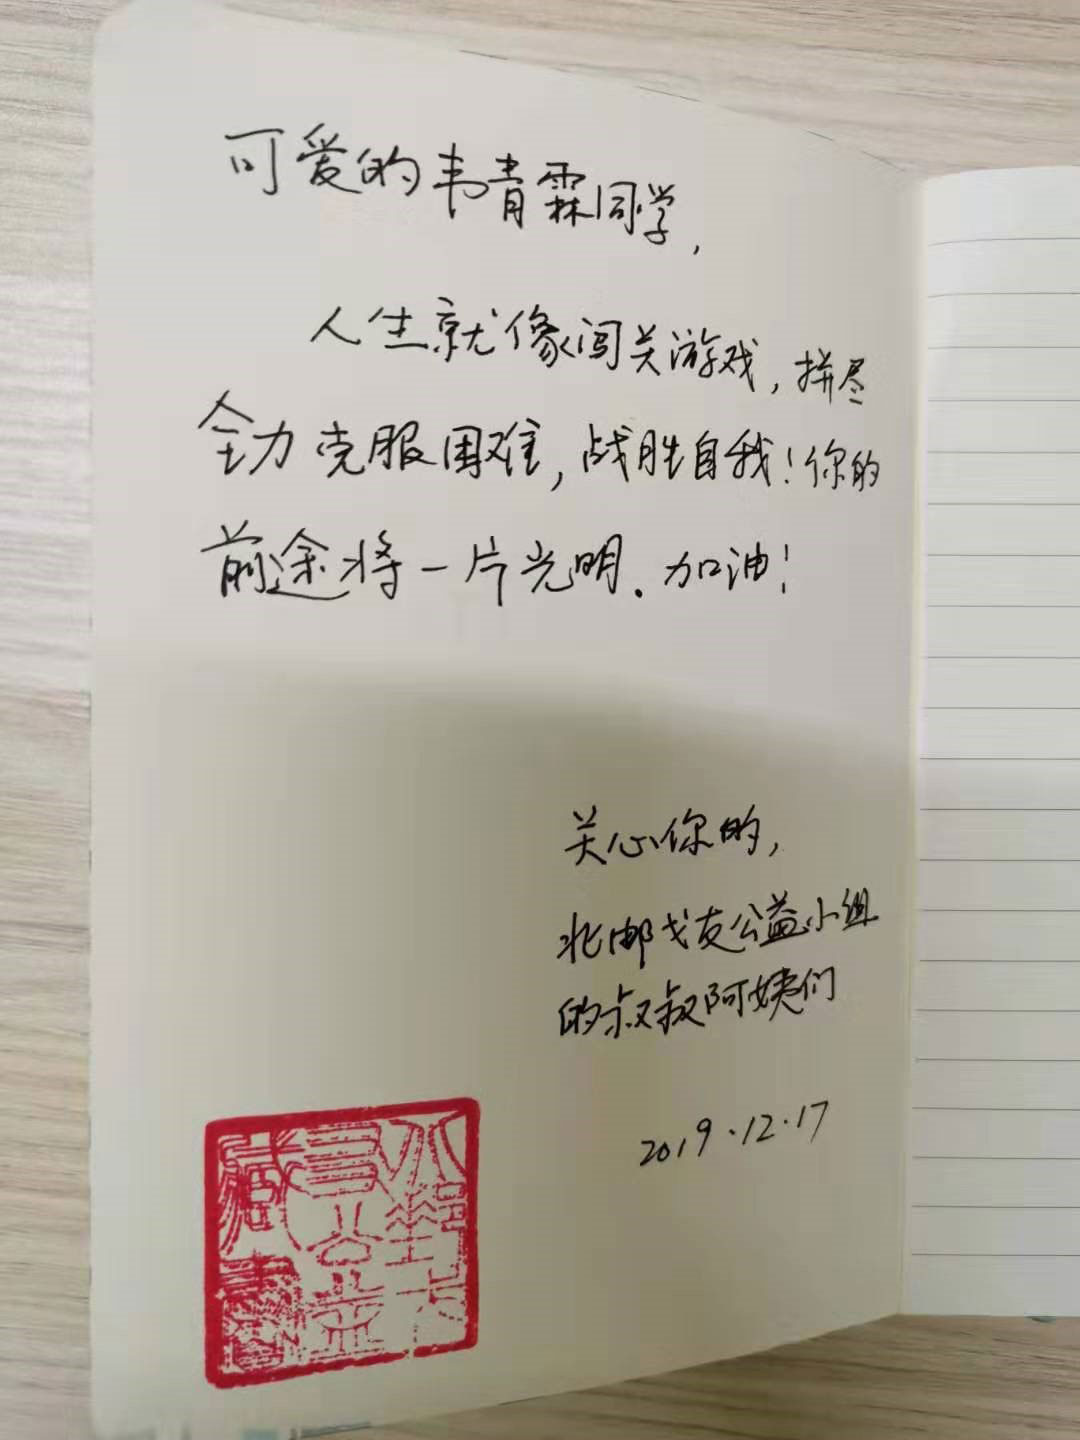 可爱的韦青霖同学,
人生就像闯关游戏,拼尽
全力克服困难,战胜自我!你的
前途将一片光明.加油!
关心你的,
北邮戈友公益小组
的叔叔阿姨们
2019.12.17
藏书
公益